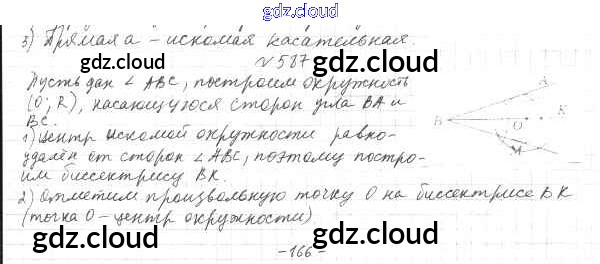 gdz.cloud
3) Прямая a - искомая касательная.
№587
Пусть дан ∠ ABC, построим окружность
(O; R), касающуюся сторон угла BA и
BC.
1) Центр искомой окружности равно-
удалён от сторон ∠ ABC, поэтому постро-
им биссектрису BK.
2) Отметим произвольную точку O на биссектрисе BK
(точка O - центр окружности)
A
B
O
K
M
gdz.cloud
gdz.cloud
gdz.cloud
gdz.cloud
gdz.cloud
gdz.cloud
-166-
gdz.cloud